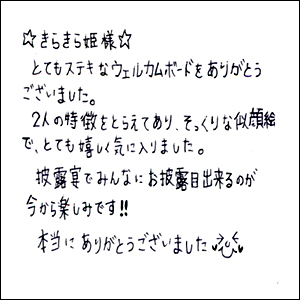 ☆きらきら姫様☆
とてもステキなウェルカムボードをありがとう
ございました。
2人の特徴をとらえてあり、そっくりな似顔絵
で、とても嬉しく気に入りました。
披露宴でみんなにお披露目出来るのが
今から楽しみです!!
本当にありがとうございました